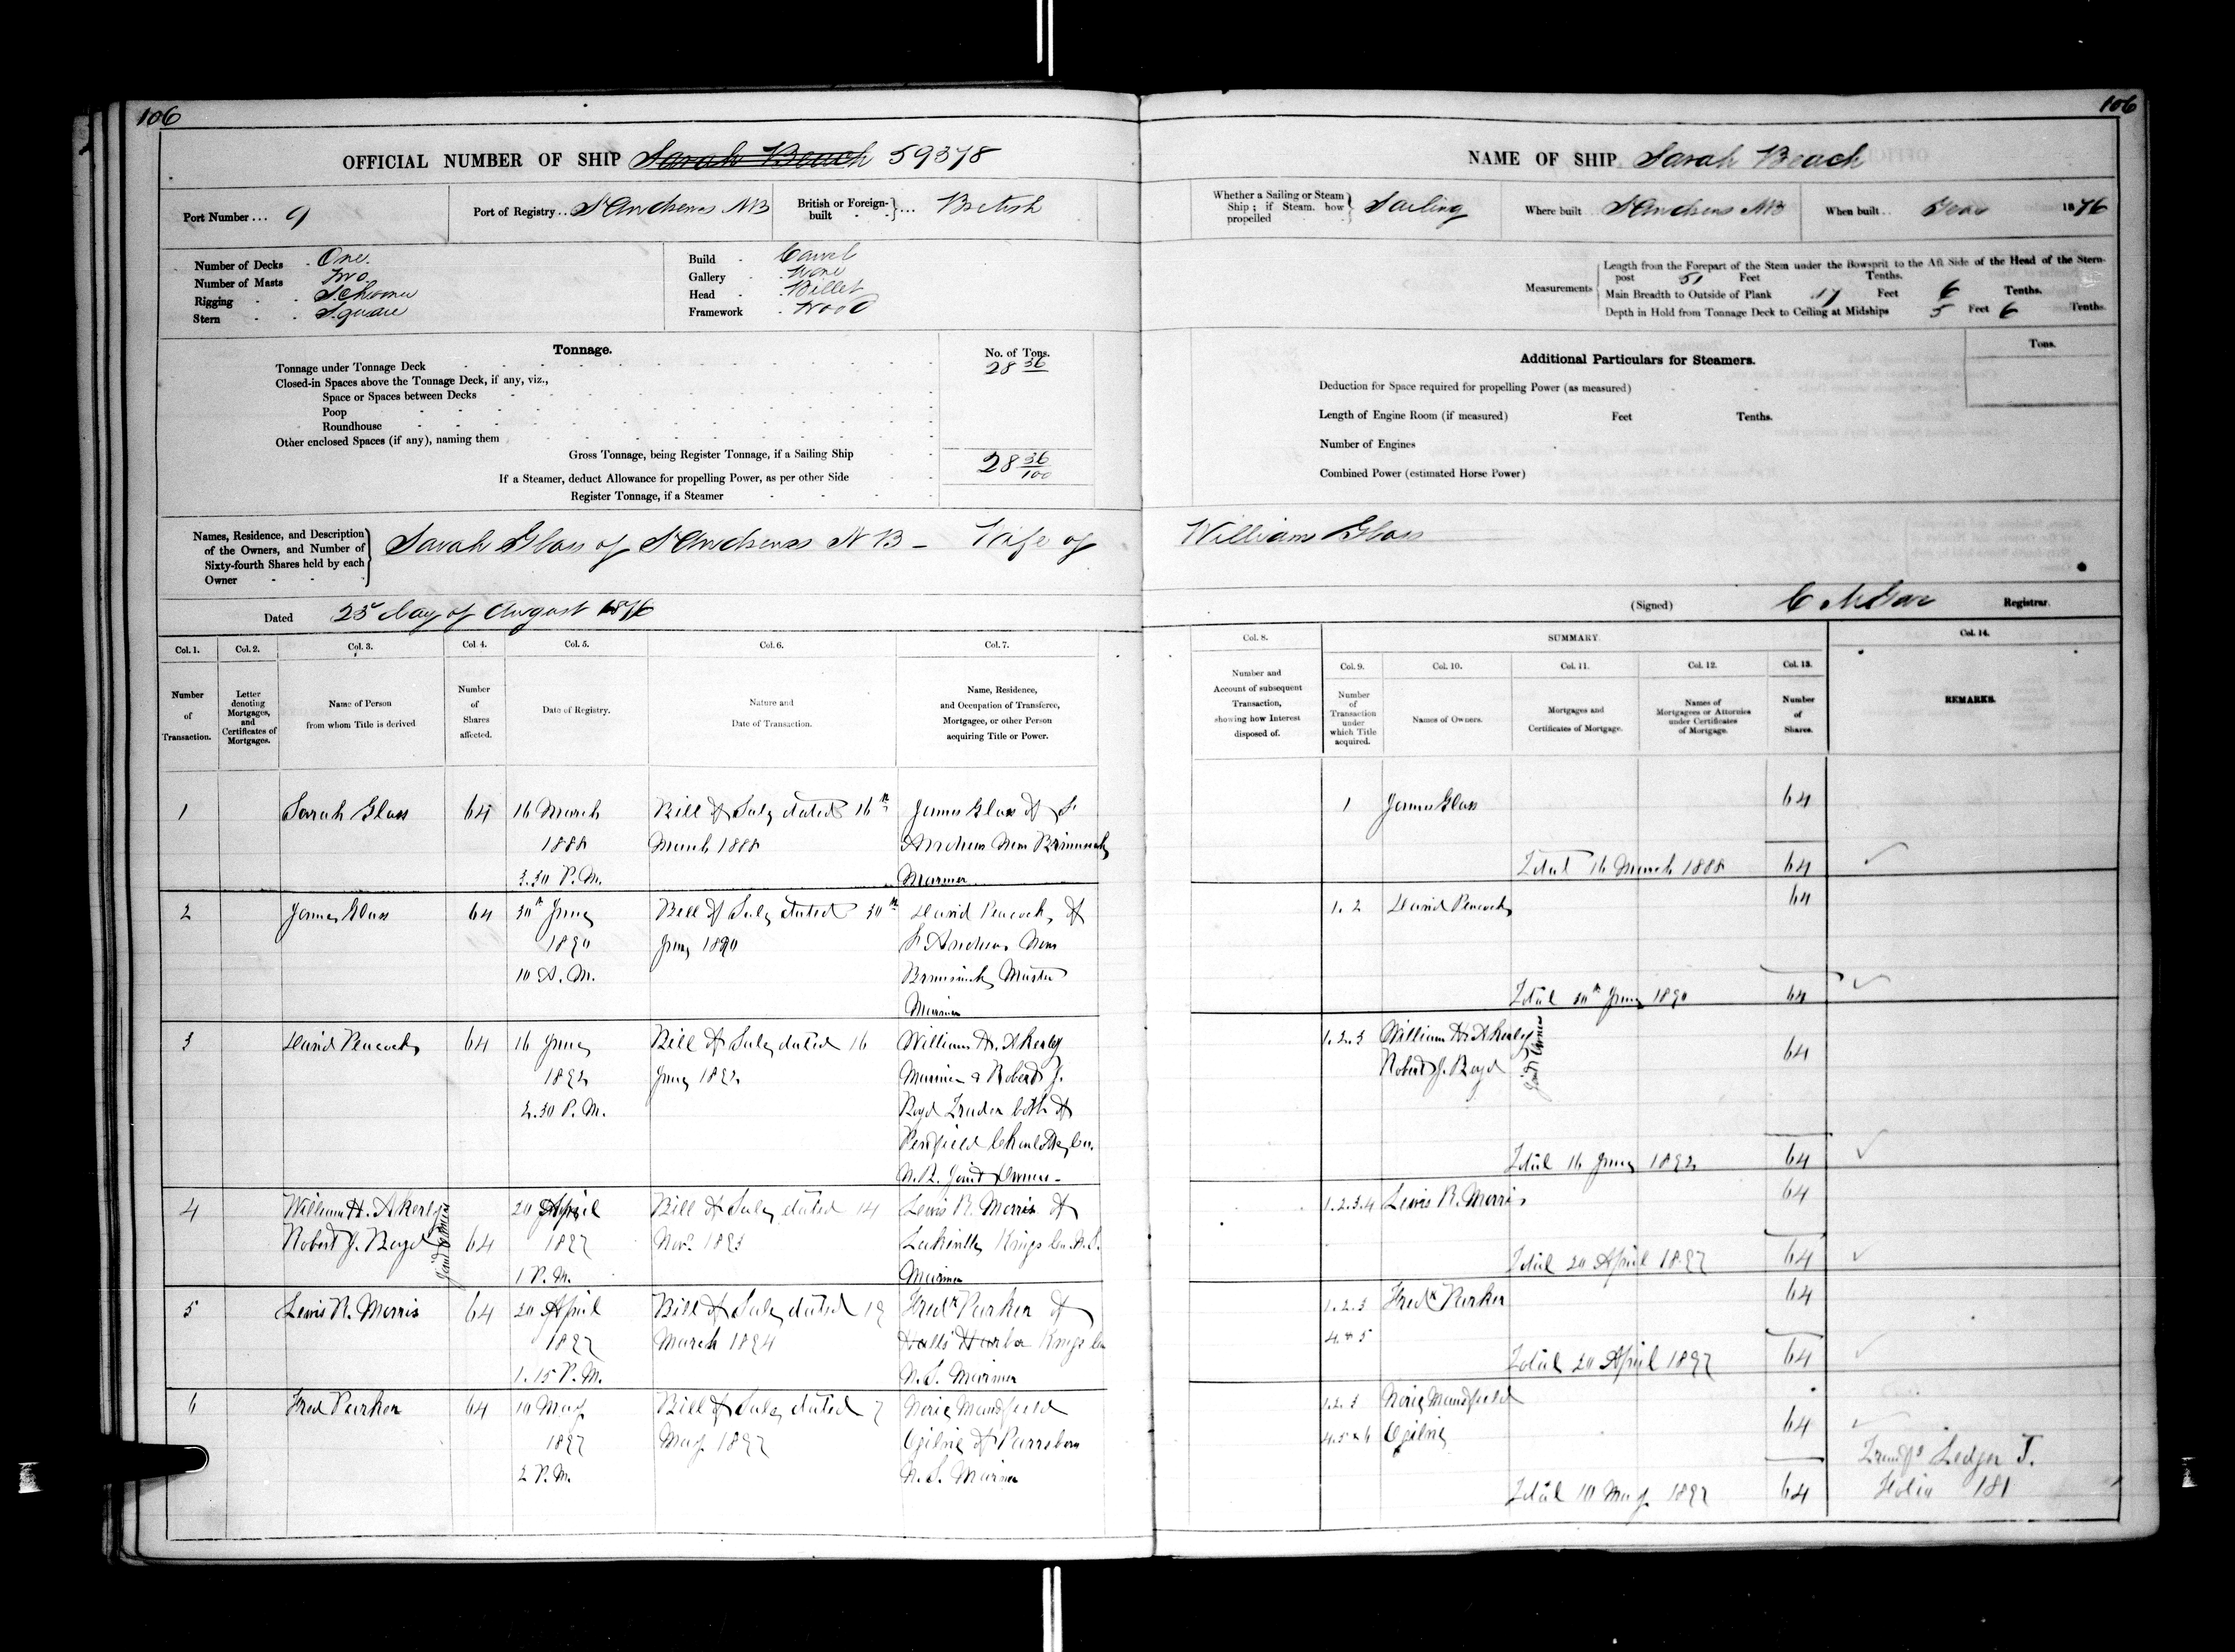 106
OFFICIAL NUMBER OF SHIP Sarah Beach 59378
Port Number... 9
Port of Registry.. St Andrews NB
British or Foreign-built } ... British
Number of Decks One.
Number of Masts Two.
Rigging Schooner
Stern Square
Build Carvel
Gallery None
Head Billet
Framework Wood
Tonnage.
No. of Tons.
Tonnage under Tonnage Deck 28 36
Closed-in Spaces above the Tonnage Deck, if any, viz.,
Space or Spaces between Decks
Poop
Roundhouse
Other enclosed Spaces (if any), naming them
Gross Tonnage, being Register Tonnage, if a Sailing Ship 28 36/100
If a Steamer, deduct Allowance for propelling Power, as per other Side
Register Tonnage, if a Steamer
Names, Residence, and Description
of the Owners, and Number of
Sixty-fourth Shares held by each
Owner
Sarah Glass of St Andrews N B - Wife of
Dated 25 day of August 1876
Col. 1. Col. 2. Col. 3. Col. 4. Col. 5. Col. 6. Col. 7.
Number of Transaction.
Letter denoting Mortgages, and Certificates of Mortgages.
Name of Person from whom Title is derived
Number of Shares affected.
Date of Registry.
Nature and Date of Transaction.
Name, Residence, and Occupation of Transferee, Mortgagee, or other Person acquiring Title or Power.
1 Sarah Glass 64 16 March Bill of Sale dated 16th James Glass of St
1888 March 1888 Andrews New Brunswick
3.30 P.M. Mariner
2 James Glass 64 30th June Bill of Sale dated 30th David Peacock, of
1890 June 1890 St Andrews New
10 A.M. Brunswick Master
Mariner
3 David Peacock 64 16 June Bill of Sale dated 16 William H. Akerley
1892 June 1892 Mariner & Robert J.
2.30 P.M. Boyd Trader both of
Penfield Charlotte Co.
N.B. Joint Owners-
4 William H. Akerley 20 April Bill of Sale dated 14 Lewis R. Morris of
Robert J. Boyd Joint Owners 64 1897 Nov. 1893 Kings Co. N.S.
1 P.M. Mariner
5 Lewis R. Morris 64 20 April Bill of Sale dated 19 Fredk Parker of
1897 March 1894 Halls Harbor Kings Co
1.15 P.M. N.S. Mariner
6 Fred Parker 64 10 May Bill of Sale dated 7 Norie Mandfield
1897 May 1897 Ogilvie of Parrsboro
2 P.M. N.S. Mariner
106
NAME OF SHIP Sarah Beach
Whether a Sailing or Steam Ship; if Steam, how propelled } Sailing
Where built St Andrews NB
When built.. Year 1876
Measurements
Length from the Forepart of the Stem under the Bowsprit to the Aft Side of the Head of the Stern-
post 51 Feet Tenths.
Main Breadth to Outside of Plank 17 Feet 6 Tenths.
Depth in Hold from Tonnage Deck to Ceiling at Midships 5 Feet 6 Tenths.
Additional Particulars for Steamers.
Tons.
Deduction for Space required for propelling Power (as measured)
Length of Engine Room (if measured) Feet Tenths.
Number of Engines
Combined Power (estimated Horse Power)
William Glass
(Signed) Registrar.
Col. 8. SUMMARY. Col. 14.
Col. 9. Col. 10. Col. 11. Col. 12. Col. 13.
Number and Account of subsequent Transaction, showing how Interest disposed of.
Number of Transaction under which Title acquired.
Names of Owners.
Mortgages and Certificates of Mortgage.
Names of Mortgagees or Attornies under Certificates of Mortgage.
Number of Shares.
REMARKS.
1 James Glass 64
Total 16 March 1888 64
1.2 David Peacock 64
Total 30th June 1890 64
1.2.3 William H. Akerley
Robert J. Boyd Joint Owners 64
Total 16 June 1892 64
1.2.3.4 Lewis R. Morris 64
Total 20 April 1897 64
1.2.3 Fredk Parker 64
4.&5
Total 20 April 1897 64
1.2.3 Norie Mandfield
4.5&6 Ogilvie 64
Transfd Ledger J.
Total 10 May 1897 64 Folio 181